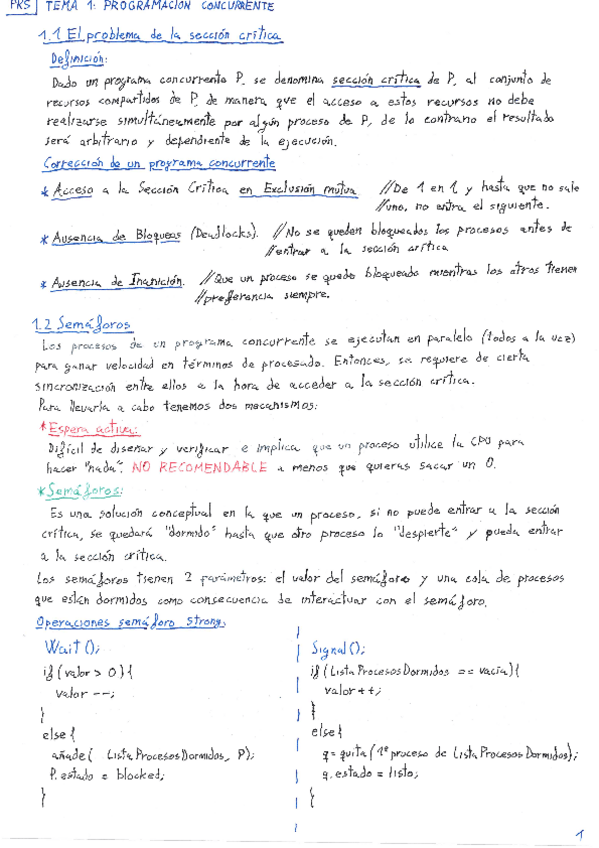 PKS TEMA 1: PROGRAMACIÓN CONCURRENTE
1.1 El problema de la sección crítica
Definición:
Dado un programa concurrente P, se denomina sección crítica de P, al conjunto de
recursos compartidos de P, de manera que el acceso a estos recursos no debe
realizarse simultáneamente por algún proceso de P, de lo contrario el resultado
será arbitrario y dependiente de la ejecución.
Corrección de un programa concurrente
* Acceso a la Sección Crítica en Exclusión mutua //De 1 en 1 y hasta que no sale
//uno, no entra el siguiente.
* Ausencia de Bloqueos (Deadlocks). //No se queden bloqueados los procesos antes de
//entrar a la sección crítica
* Ausencia de Inanición. //Que un proceso se quede bloqueado mientras los otros tienen
//preferencia siempre.
1.2 Semáforos
Los procesos de un programa concurrente se ejecutan en paralelo (todos a la vez)
para ganar velocidad en términos de procesado. Entonces, se requiere de cierta
sincronización entre ellos a la hora de acceder a la sección crítica.
Para llevarla a cabo tenemos dos mecanismos:
*Espera activa:
Difícil de diseñar y verificar e implica que un proceso utilice la CPU para
hacer "nada". NO RECOMENDABLE a menos que quieras sacar un 0.
*Semáforos:
Es una solución conceptual en la que un proceso, si no puede entrar a la sección
crítica, se quedará "dormido" hasta que otro proceso lo "despierte" y pueda entrar
a la sección crítica.
Los semáforos tienen 2 parámetros: el valor del semáforo y una cola de procesos
que están dormidos como consecuencia de interactuar con el semáforo.
Operaciones semáforo strong:
Wait();
if(valor > 0){
valor --;
}
else{
añade( ListaProcesosDormidos, P);
P.estado = blocked;
}
Signal();
if(ListaProcesosDormidos == vacía){
valor++;
}
else{
q=quita(1º proceso de ListaProcesosDormidos);
q.estado = listo;
{
1